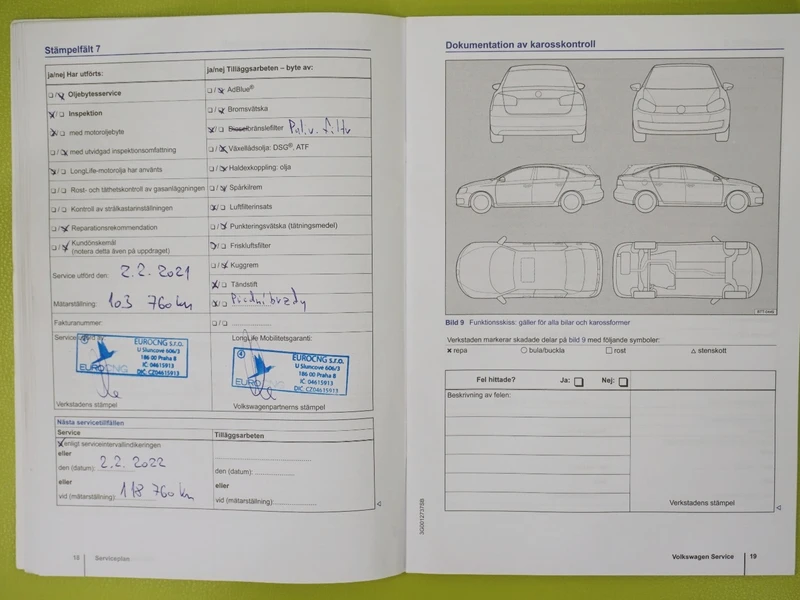 Stämpelfält 7
ja/nej Har utförts:
☐/☒ Oljebytesservice
☒/☐ Inspektion
☒/☐ med motoroljebyte
☐/☒ med utvidgad inspektionsomfattning
☒/☐ LongLife-motorolja har använts
☐/☐ Rost- och täthetskontroll av gasanläggningen
☐/☐ Kontroll av strålkastarinställningen
☐/☒ Reparationsrekommendation
☐/☒ Kundönskemål
(notera detta även på uppdraget)
Service utförd den: 2.2.2021
Mätarställning: 103 760 km
Fakturanummer:
ja/nej Tilläggsarbeten – byte av:
☐/☒ AdBlue®
☐/☒ Bromsvätska
☒/☐ Dieselbränslefilter Pal.v. filtr
☐/☒ Växellådsolja: DSG®, ATF
☐/☒ Haldexkoppling: olja
☐/☒ Spårkilrem
☒/☐ Luftfilterinsats
☐/☒ Punkteringsvätska (tätningsmedel)
☒/☐ Friskluftsfilter
☐/☒ Kuggrem
☒/☐ Tändstift
☒/☐ Přední brzdy
☐/☐
Service utförd av:
EUROCNG s.r.o.
U Sluncové 606/3
186 00 Praha 8
IČ: 04615913
DIČ: CZ04615913
EUROCNG
Verkstadens stämpel
LongLife Mobilitetsgaranti:
EUROCNG s.r.o.
U Sluncové 606/3
186 00 Praha 8
IČ: 04615913
DIČ: CZ04615913
EUROCNG
Volkswagenpartnerns stämpel
Nästa servicetillfällen
Service
☒ enligt serviceintervallindikeringen
eller
den (datum): 2.2.2022
eller
vid (mätarställning): 118 760 km
Tilläggsarbeten
den (datum):
eller
vid (mätarställning):
18 Serviceplan
Dokumentation av karosskontroll
BTT-0466
Bild 9 Funktionsskiss: gäller för alla bilar och karossformer
Verkstaden markerar skadade delar på bild 9 med följande symboler:
✕ repa ○ bula/buckla □ rost △ stenskott
Fel hittade? Ja: ☐ Nej: ☐
Beskrivning av felen:
Verkstadens stämpel
3G0012737SB
Volkswagen Service 19